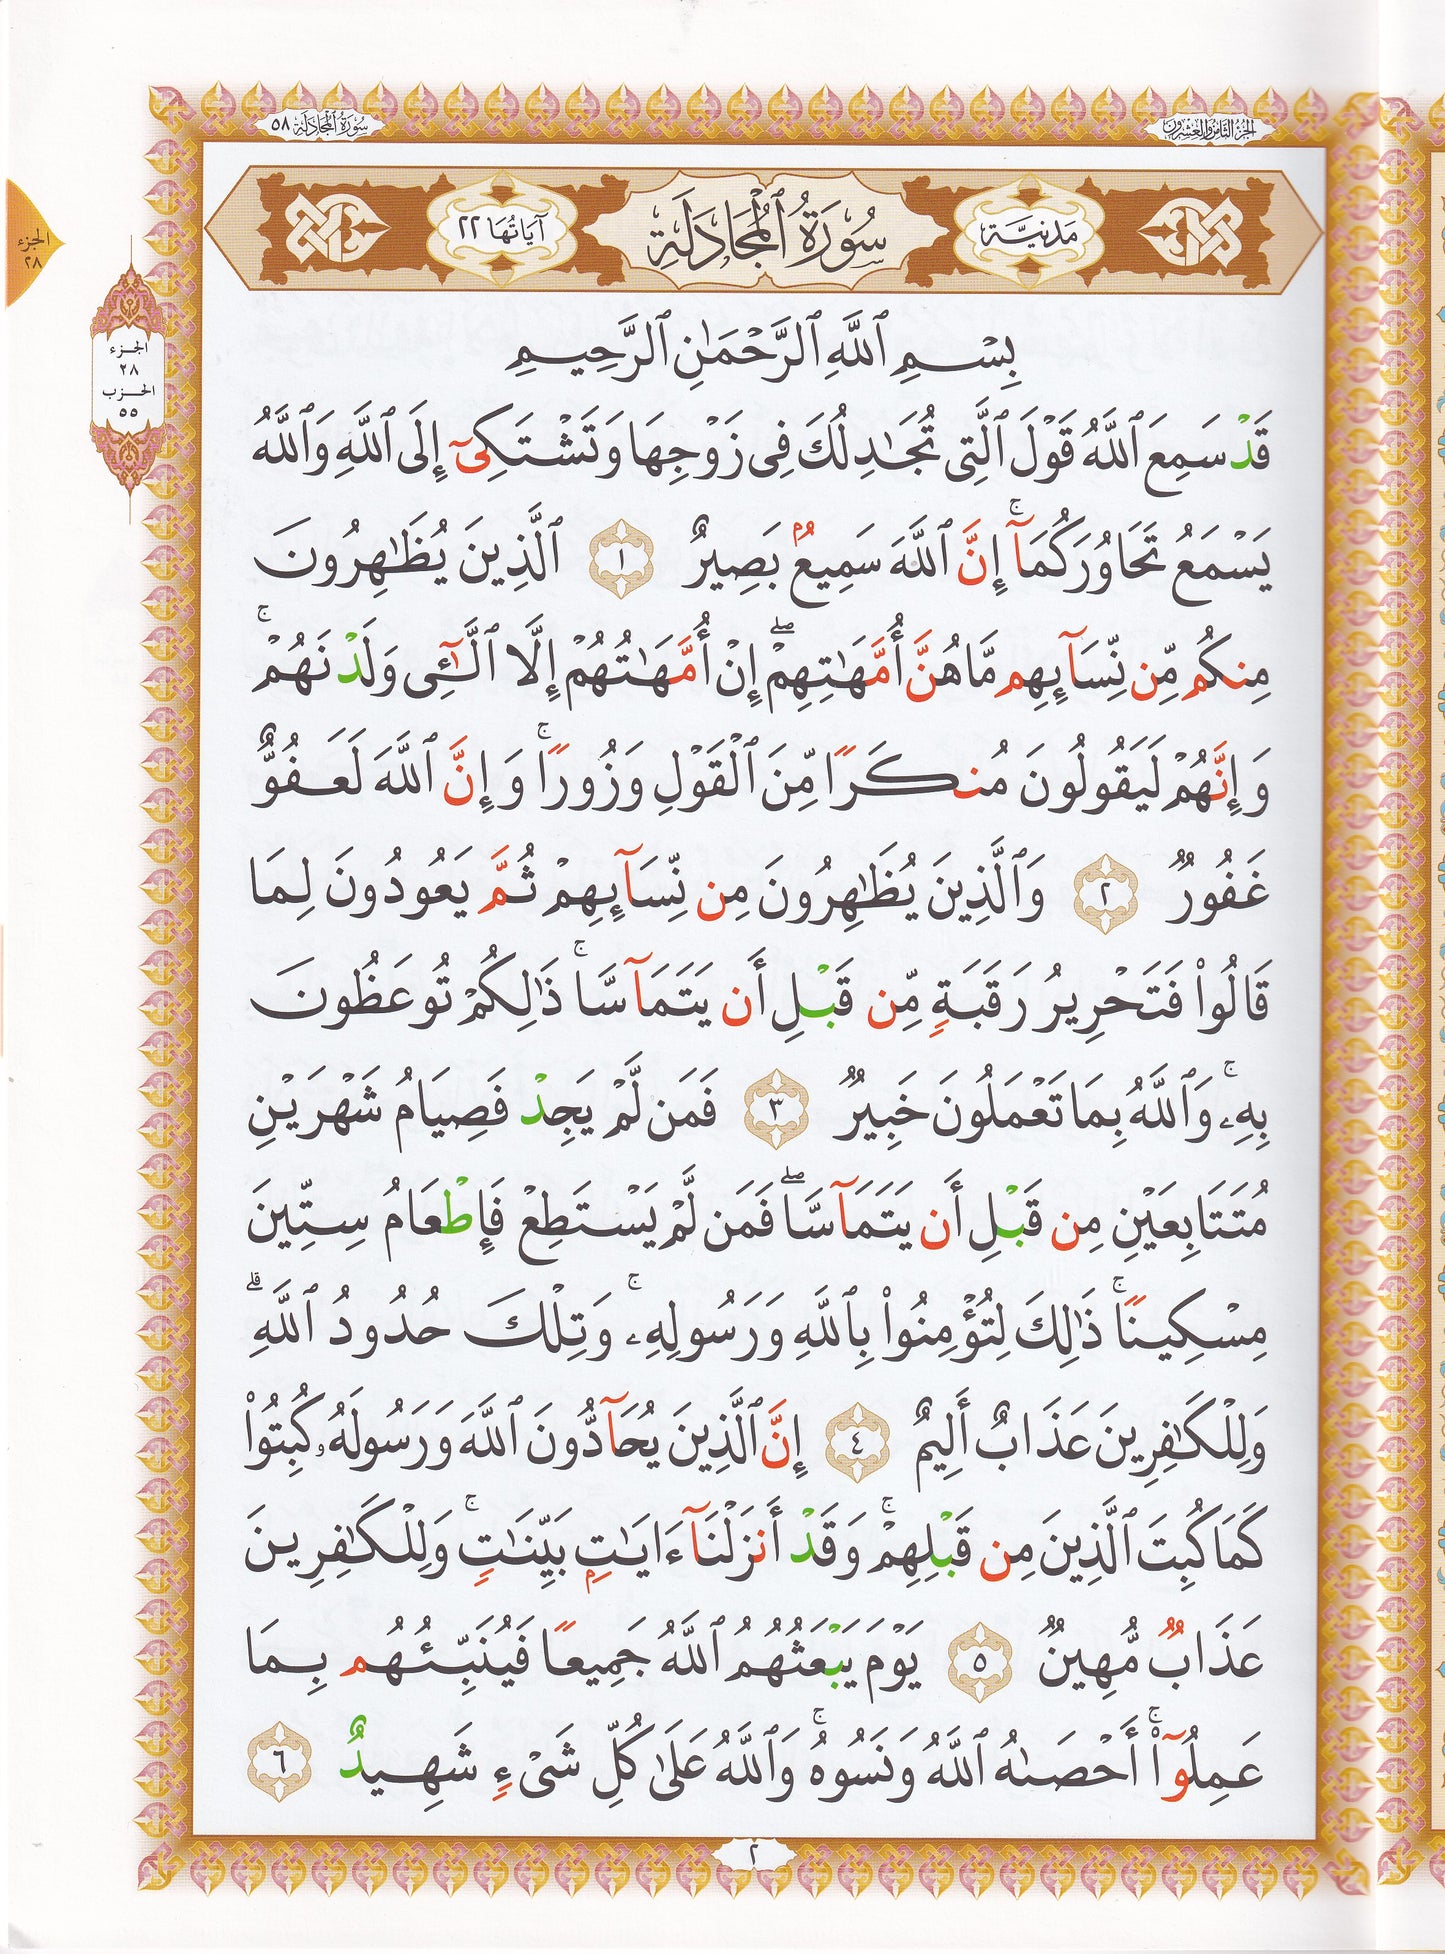 الجزء الثامن والعشرون
سورة المجادلة ٥٨
مدنية
سُورَةُ ٱلْمُجَادَلَةِ
آيَاتُهَا ٢٢
الجزء
٢٨
الجزء
٢٨
الحزب
٥٥
بِسْمِ ٱللَّهِ ٱلرَّحْمَٰنِ ٱلرَّحِيمِ
قَدْ سَمِعَ ٱللَّهُ قَوْلَ ٱلَّتِى تُجَٰدِلُكَ فِى زَوْجِهَا وَتَشْتَكِىٓ إِلَى ٱللَّهِ وَٱللَّهُ
يَسْمَعُ تَحَاوُرَكُمَآ ۚ إِنَّ ٱللَّهَ سَمِيعٌۢ بَصِيرٌ ١ ٱلَّذِينَ يُظَٰهِرُونَ
مِنكُم مِّن نِّسَآئِهِم مَّا هُنَّ أُمَّهَٰتِهِمْ ۖ إِنْ أُمَّهَٰتُهُمْ إِلَّا ٱلَّٰٓـِٔى وَلَدْنَهُمْ ۚ
وَإِنَّهُمْ لَيَقُولُونَ مُنكَرًا مِّنَ ٱلْقَوْلِ وَزُورًا ۚ وَإِنَّ ٱللَّهَ لَعَفُوٌّ
غَفُورٌ ٢ وَٱلَّذِينَ يُظَٰهِرُونَ مِن نِّسَآئِهِمْ ثُمَّ يَعُودُونَ لِمَا
قَالُوا۟ فَتَحْرِيرُ رَقَبَةٍ مِّن قَبْلِ أَن يَتَمَآسَّا ۚ ذَٰلِكُمْ تُوعَظُونَ
بِهِۦ ۚ وَٱللَّهُ بِمَا تَعْمَلُونَ خَبِيرٌ ٣ فَمَن لَّمْ يَجِدْ فَصِيَامُ شَهْرَيْنِ
مُتَتَابِعَيْنِ مِن قَبْلِ أَن يَتَمَآسَّا ۖ فَمَن لَّمْ يَسْتَطِعْ فَإِطْعَامُ سِتِّينَ
مِسْكِينًا ۚ ذَٰلِكَ لِتُؤْمِنُوا۟ بِٱللَّهِ وَرَسُولِهِۦ ۚ وَتِلْكَ حُدُودُ ٱللَّهِ ۗ
وَلِلْكَٰفِرِينَ عَذَابٌ أَلِيمٌ ٤ إِنَّ ٱلَّذِينَ يُحَآدُّونَ ٱللَّهَ وَرَسُولَهُۥ كُبِتُوا۟
كَمَا كُبِتَ ٱلَّذِينَ مِن قَبْلِهِمْ ۚ وَقَدْ أَنزَلْنَآ ءَايَٰتٍۭ بَيِّنَٰتٍ ۚ وَلِلْكَٰفِرِينَ
عَذَابٌ مُّهِينٌ ٥ يَوْمَ يَبْعَثُهُمُ ٱللَّهُ جَمِيعًا فَيُنَبِّئُهُم بِمَا
عَمِلُوٓا۟ ۚ أَحْصَىٰهُ ٱللَّهُ وَنَسُوهُ ۚ وَٱللَّهُ عَلَىٰ كُلِّ شَىْءٍ شَهِيدٌ ٦
٢